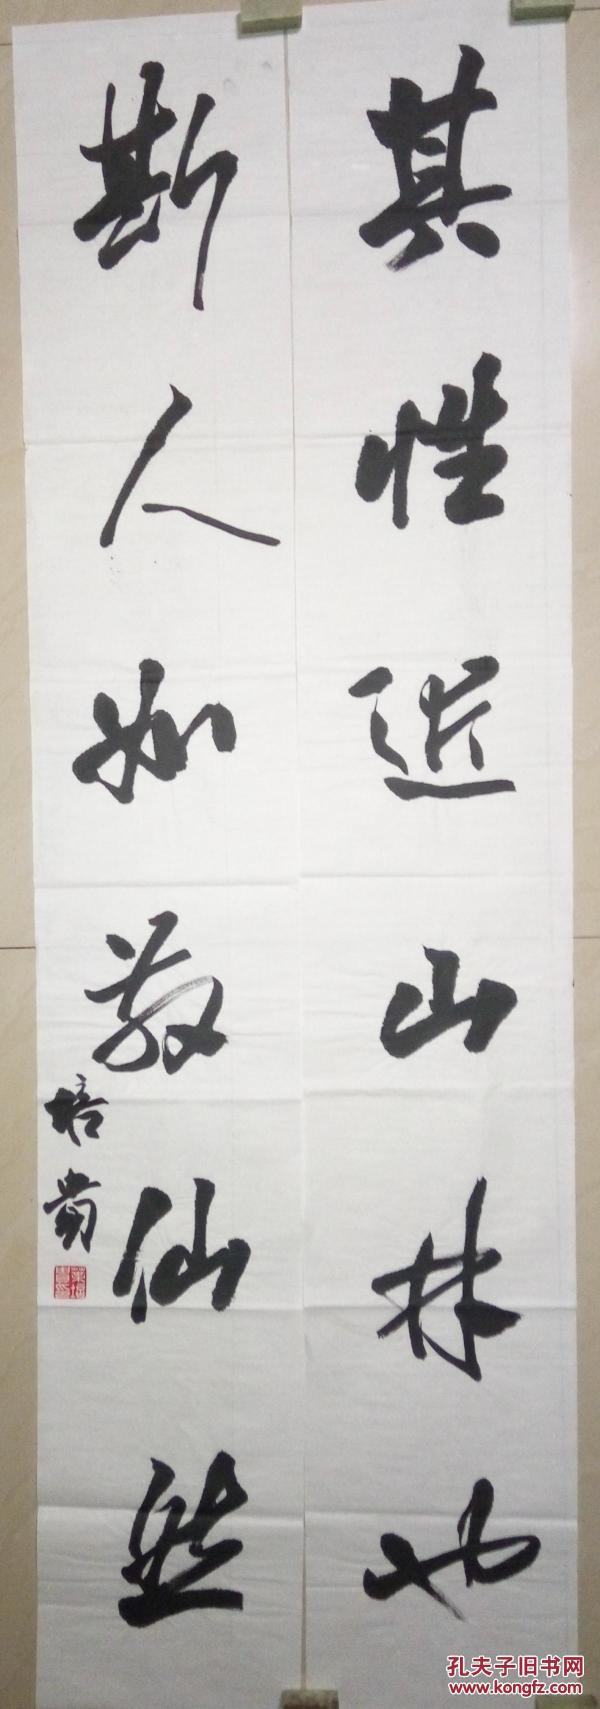 其性近山林也
斯人如散仙然
培贵
孔夫子旧书网
www.kongfz.com